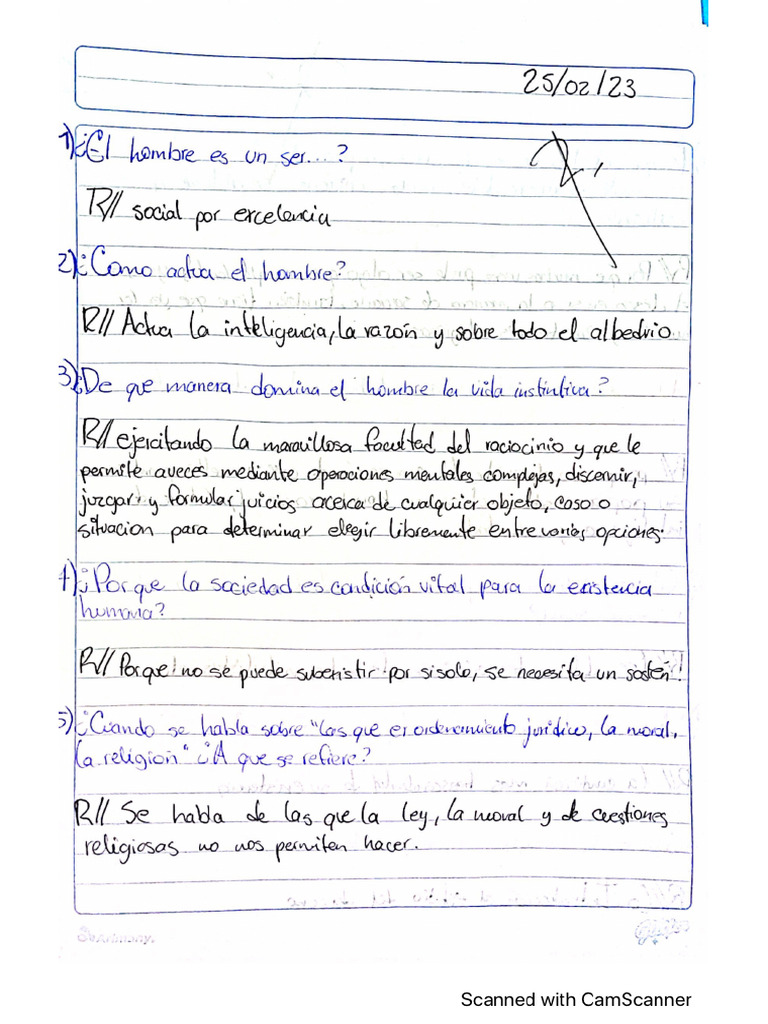 25/02/23
1) ¿El hombre es un ser...?
R// social por excelencia
2) ¿Como actua el hombre?
R// Actua la inteligencia, la razón y sobre todo el albedrio.
3) ¿De que manera domina el hombre la vida instintiva?
R// ejercitando la maravillosa facultad del raciocinio y que le
permite aveces mediante operaciones mentales complejas, discernir,
juzgar y formular juicios acerca de cualquier objeto, caso o
situacion para determinar elegir libremente entre varias opciones.
4) ¿Por que la sociedad es condición vital para la existencia
humana?
R// Porque no se puede subsistir por si solo, se necesita un sostén!
5) ¿Cuando se habla sobre "las que el ordenamiento jurídico, la moral,
la religion" ¿A que se refiere?
R// Se habla de las que la ley, la moral y de cuestiones
religiosas no nos permiten hacer.
Scanned with CamScanner